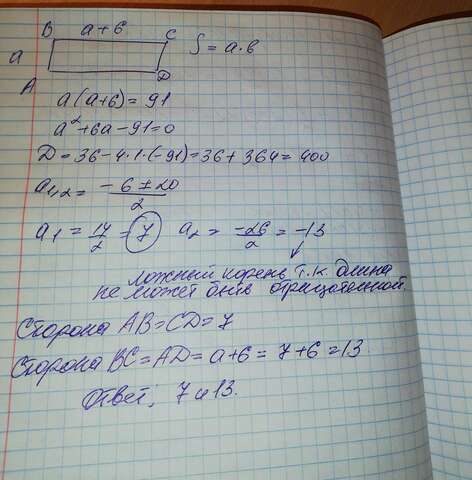 B a+6 C
a S = a·в
A D
a(a+6) = 91
a²+6a-91=0
D = 36-4·1·(-91)=36+364=400
a₁,₂= -6±20/2
a₁ = 14/2 = 7 a₂ = -26/2 = -13
ложный корень т.к. длина
не может быть отрицательной.
Сторона AB=CD=7
Сторона BC=AD=a+6=7+6=13.
Ответ; 7 и 13.